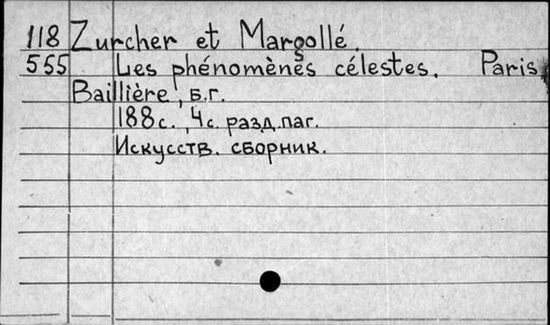 118 Zurcher et Margollé.
555 Les phénomènes célestes. Paris
Baillière, б.г.
188с., 4с. разд.паг.
Искусств. сборник.